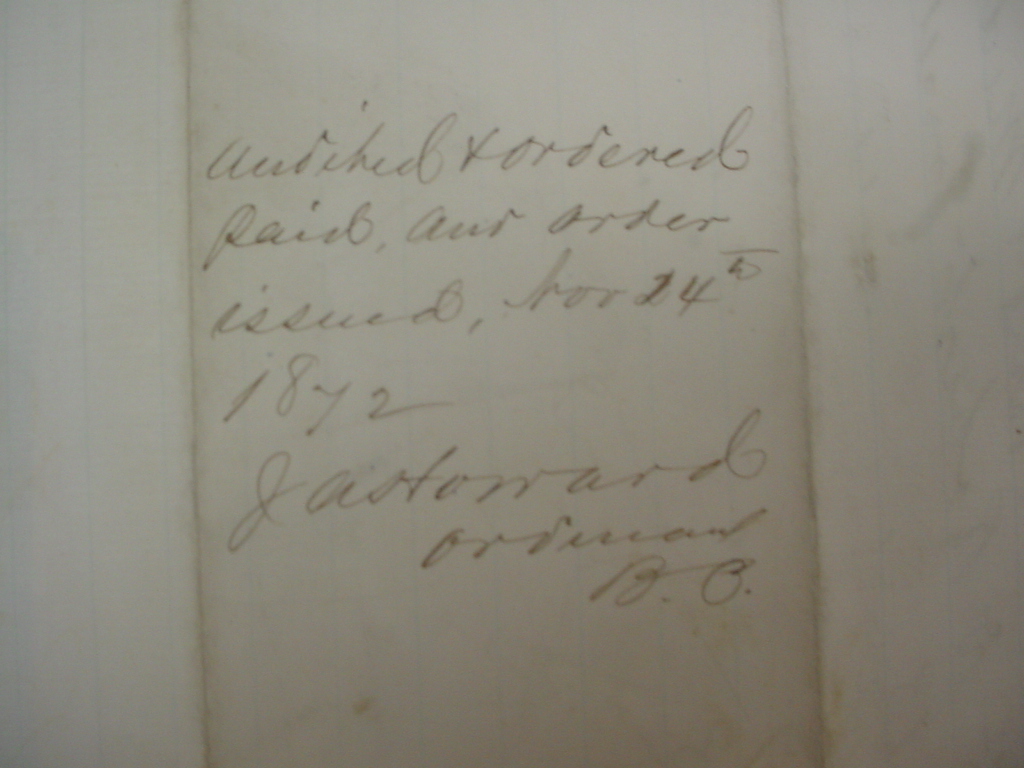 Audited & ordered
paid, and order
issued, Nov 24th
1872
J A Howard
Ordinary
B. C.